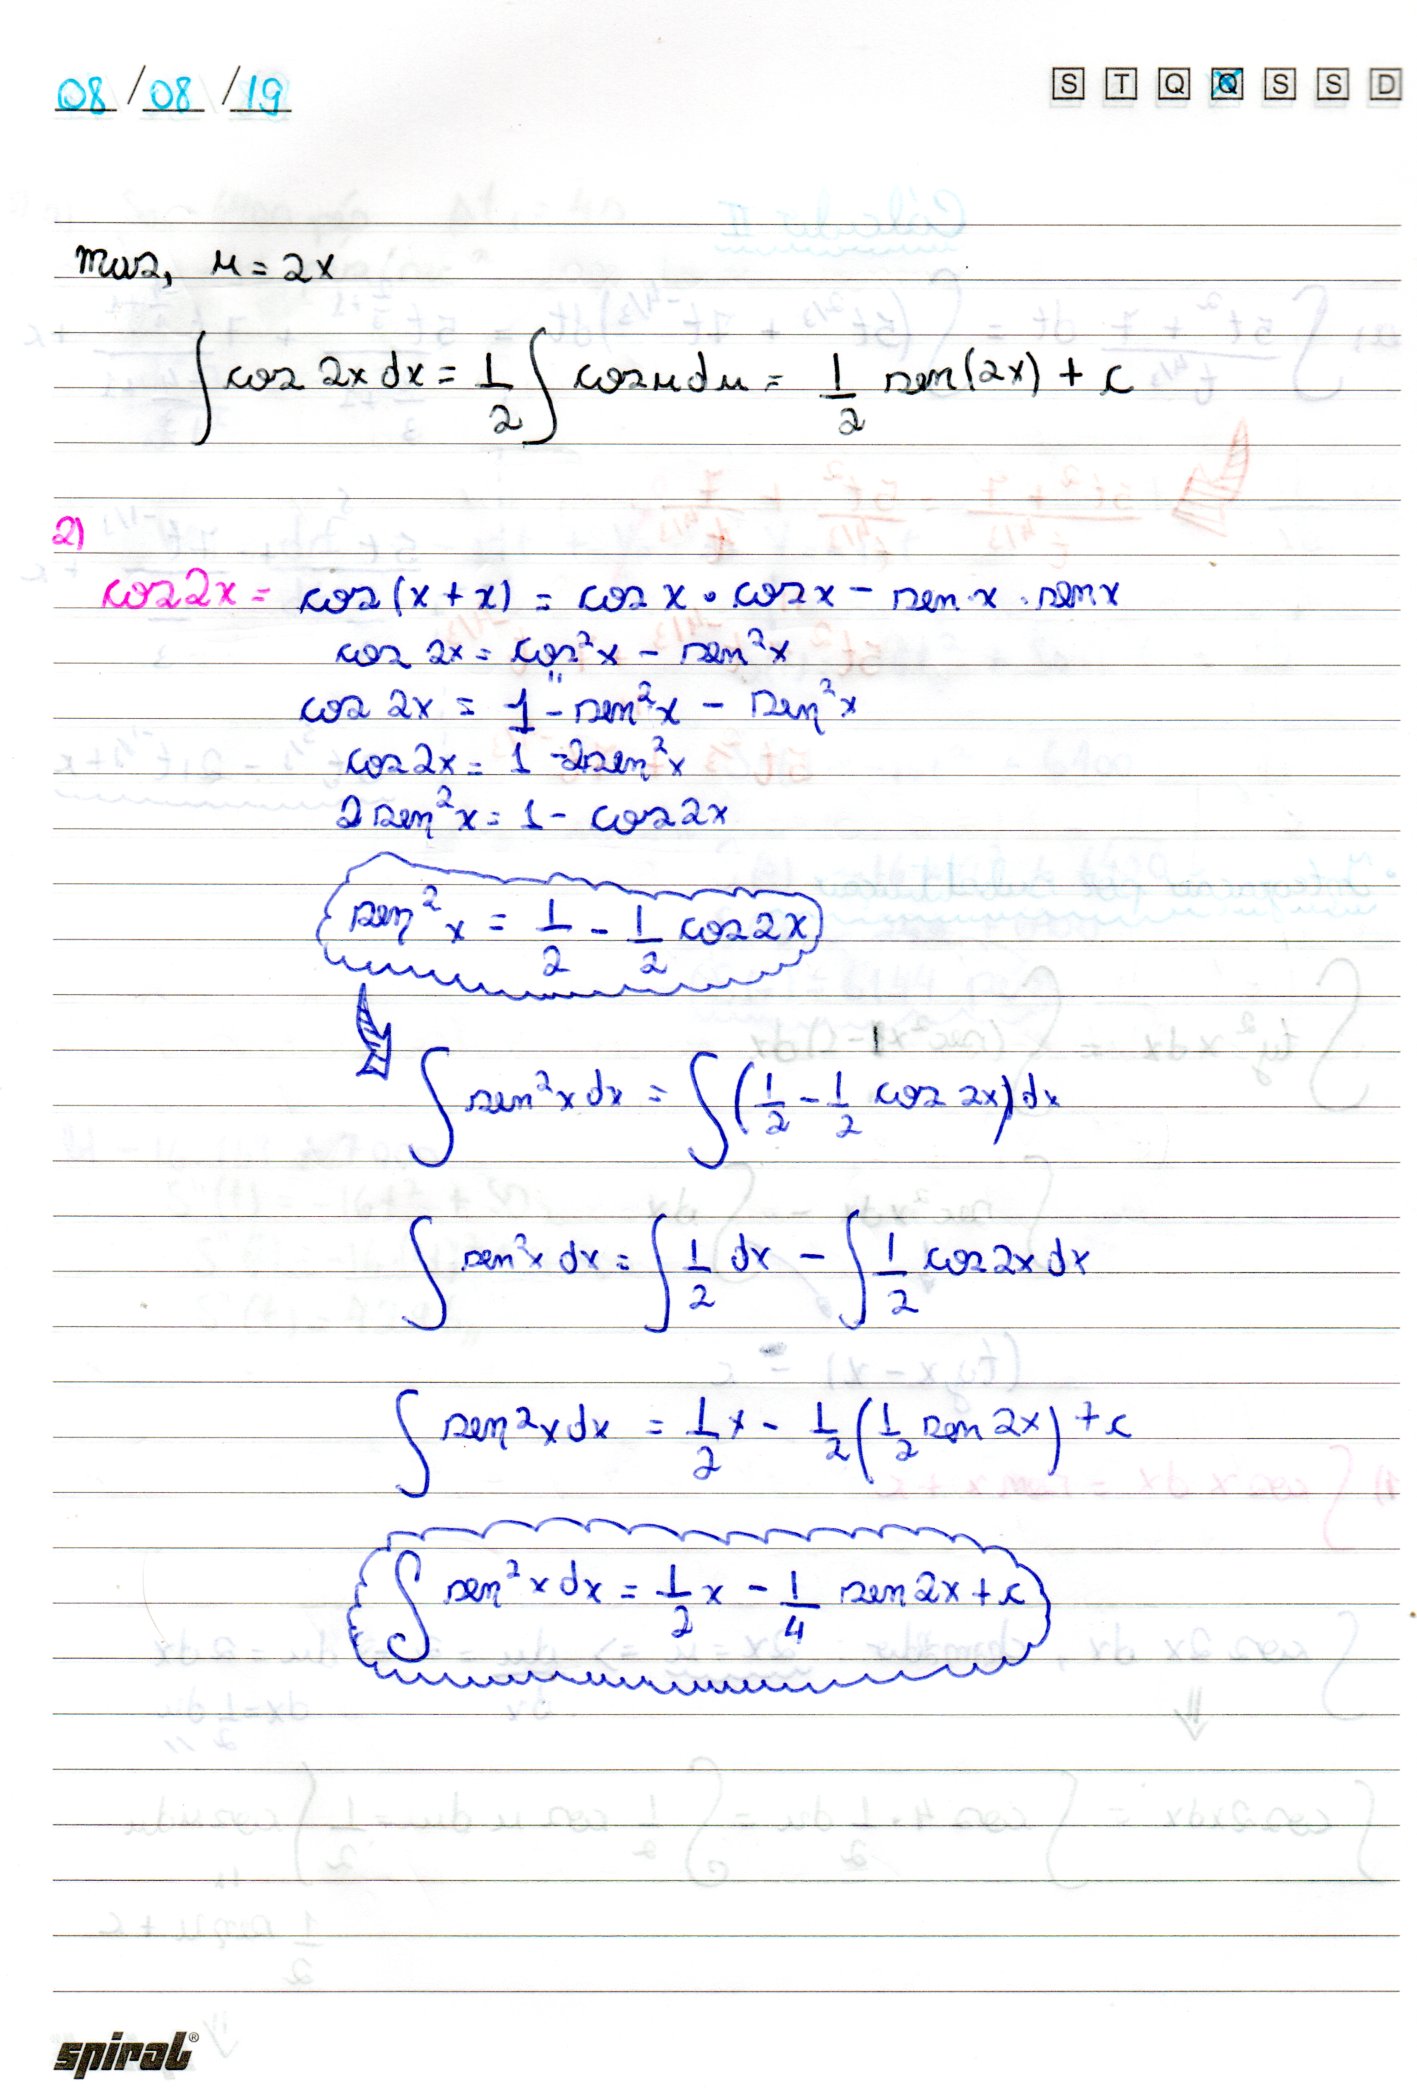 08/08/19
S T Q Q S S D
mas, u = 2x
∫ cos 2x dx = 1/2 ∫ cos u du = 1/2 sen(2x) + c
2)
cos 2x = cos(x + x) = cos x · cos x - sen x · sen x
cos 2x = cos²x - sen²x
cos 2x = 1 - sen²x - sen²x
cos 2x = 1 - 2sen²x
2 sen²x = 1 - cos 2x
sen²x = 1/2 - 1/2 cos 2x
∫ sen²x dx = ∫ (1/2 - 1/2 cos 2x) dx
∫ sen²x dx = ∫ 1/2 dx - ∫ 1/2 cos 2x dx
∫ sen²x dx = 1/2 x - 1/2 (1/2 sen 2x) + c
∫ sen²x dx = 1/2 x - 1/4 sen 2x + c
spiral®